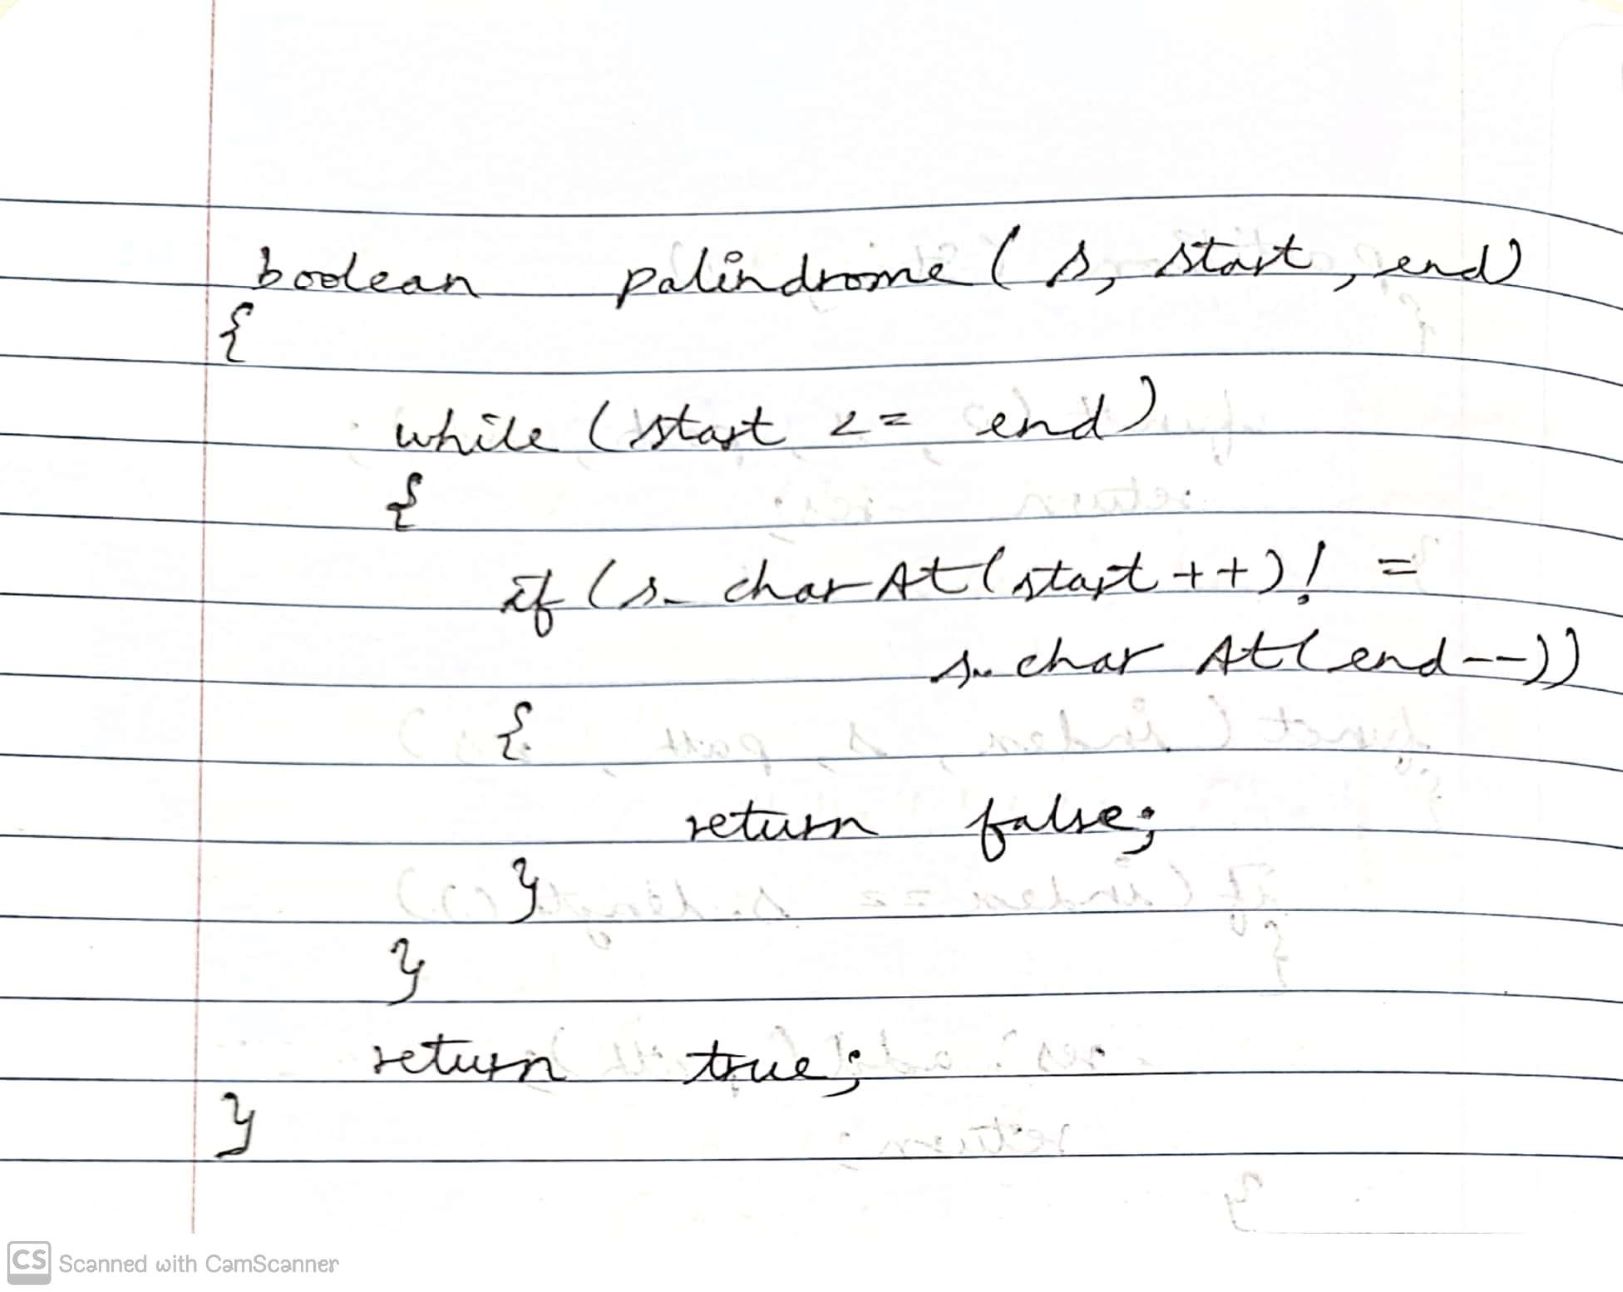 boolean palindrome ( s, start, end)
{
while (start <= end)
{
if (s. charAt(start ++) ! =
s. char At(end--))
{
return false;
}
}
return true;
}
CS Scanned with CamScanner